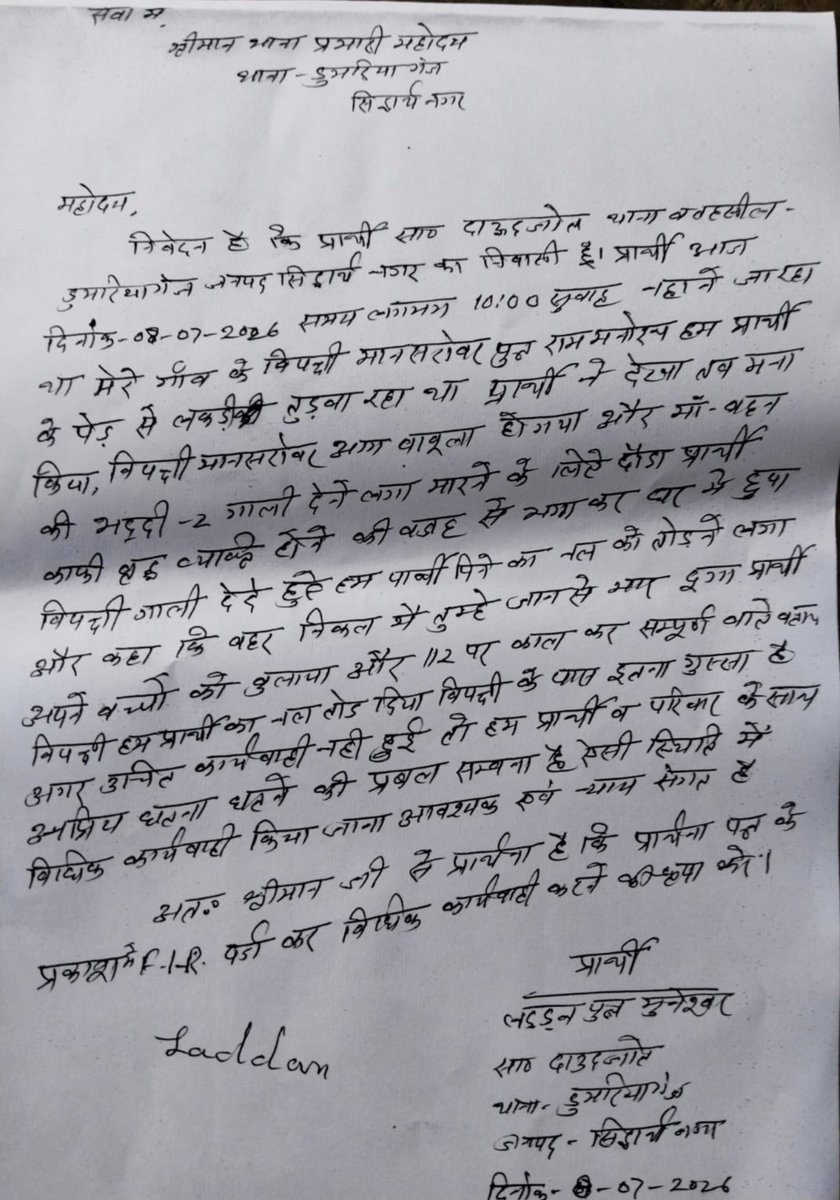 सेवा में,
श्रीमान थाना प्रभारी महोदय
थाना - डुमरियागंज
सिद्धार्थ नगर
महोदय,
निवेदन है कि प्रार्थी सा० दाऊदजोत थाना व तहसील -
डुमरियागंज जनपद सिद्धार्थ नगर का निवासी है। प्रार्थी आज
दिनांक - 08-07-2026 समय लगभग 10:00 सुवाह नहाने जा रहा
था मेरे गाँव के विपक्षी मानसरोवर पुत्र राम मनोरथ हम प्रार्थी
के पेड़ से लकड़ी तुड़वा रहा था प्रार्थी ने देखा तब मना
किया, विपक्षी मानसरोवर आग वाबूला हो गया और माँ-वहन
की भद्दी-2 गाली देने लगा मारने के लिऐ दौडा प्रार्थी
काफी वृद्ध व्यक्ति होने की वजह से भाग कर घर मे छुपा
विपक्षी गाली देदे हुऐ हम पार्थी पिने का नल को तोड़ने लगा
और कहा कि वहर निकल मै तुम्हे जान से मार दूगा प्रार्थी
अपने वच्चों को वुलाया और 112 पर काल कर सम्पूर्ण वाते वताय
विपक्षी हम प्रार्थी का नल तोड दिया विपक्षी के पास इतना गुस्सा है
अगर उचित कार्यवाही नही हुई तो हम प्रार्थी व परिवार के साथ
अप्रिय घतना घतने की प्रबल सम्वना है ऐसी स्थिति में
विधिक कार्यवाही किया जाना आवश्यक एवं न्याय संगत है
अतः श्रीमान जी से प्रार्थना है कि प्रार्थना पत्र के
प्रकाश मे F.I.R. दर्ज कर विधिक कार्यवाही करने की कृपा करे।
प्रार्थी
लड्डन पुत्र मुनेश्वर
Laddan
सा० दाउदजोत
थाना - डुमरियागंज
जनपद - सिद्धार्थ नगर
दिनांक - 8-07-2026